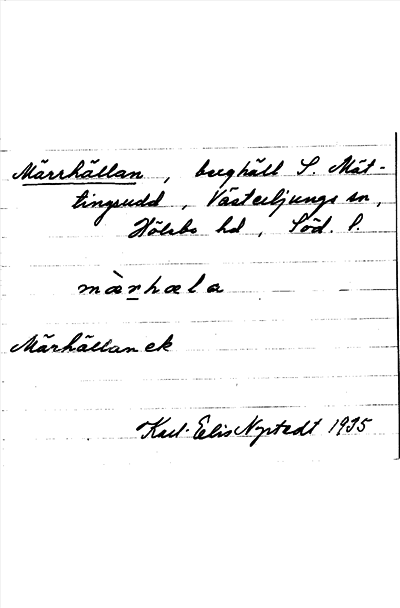 Märrhällan, berghäll S. Mät-
tingsudd, Västerljungs sn,
Hölebo hd, Söd. l.
màr̲hæla
Märhällan ek
Karl-Eelis Nystedt 1935